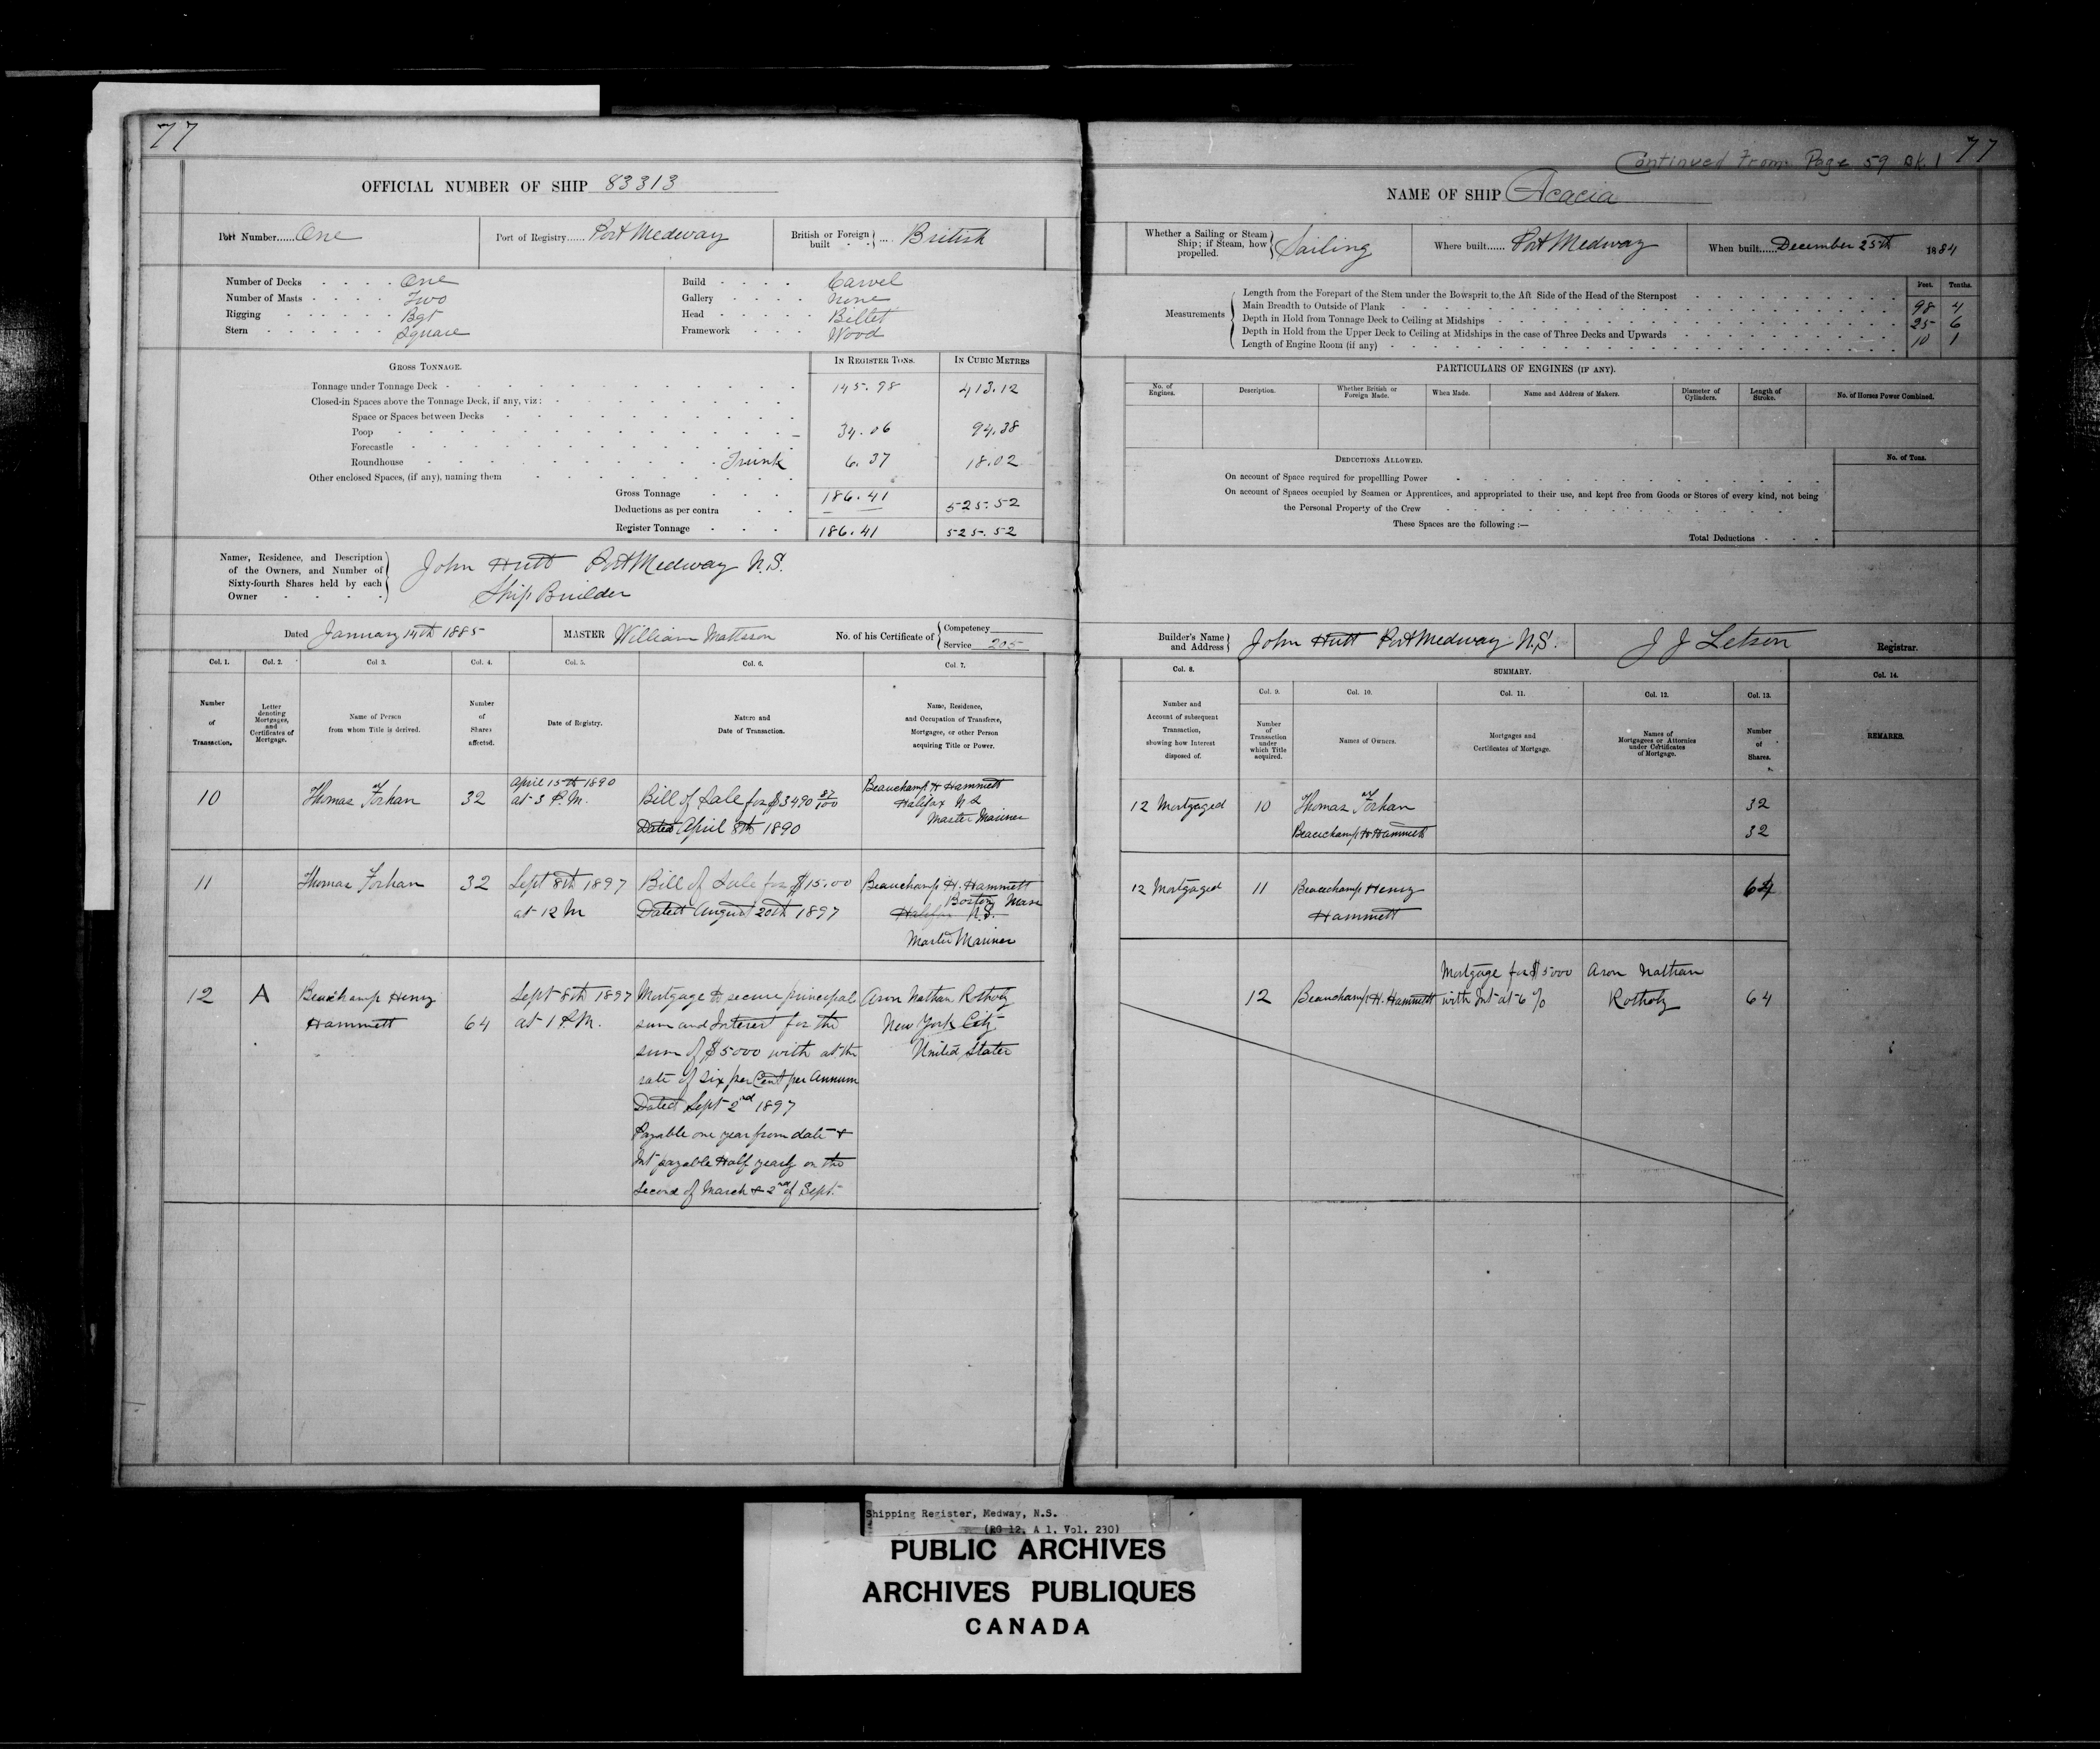 77
OFFICIAL NUMBER OF SHIP 83313
Port Number......One
Port of Registry......Port Medway
British or Foreign built .... British
Number of Decks One
Number of Masts Two
Rigging Bgt
Stern Square
Build Carvel
Gallery None
Head Billet
Framework Wood
GROSS TONNAGE.
IN REGISTER TONS.
IN CUBIC METRES
Tonnage under Tonnage Deck 145.98 413.12
Closed-in Spaces above the Tonnage Deck, if any, viz:
Space or Spaces between Decks
Poop 34.06 94.38
Forecastle
Roundhouse Trunk 6.37 18.02
Other enclosed Spaces, (if any), naming them
Gross Tonnage 186.41 525.52
Deductions as per contra
Register Tonnage 186.41 525.52
Names, Residence, and Description
of the Owners, and Number of
Sixty-fourth Shares held by each
Owner
John Hutt Port Medway N.S.
Ship Builder
Dated January 14th 1885
MASTER William Mattson
No. of his Certificate of
Competency
Service 205
Col. 1.
Number
of
Transaction.
Col. 2.
Letter
denoting
Mortgages,
and
Certificates of
Mortgage.
Col 3.
Name of Person
from whom Title is derived.
Col. 4.
Number
of
Shares
affected.
Col. 5.
Date of Registry.
Col. 6.
Nature and
Date of Transaction.
Col. 7.
Name, Residence,
and Occupation of Transferee,
Mortgagee, or other Person
acquiring Title or Power.
10
Thomas Forhan
32
April 15th 1890
at 3 P.M.
Bill of Sale for $3490 87/100
Dated April 8th 1890
Beauchamp H Hammett
Halifax N S
Master Mariner
11
Thomas Forhan
32
Sept 8th 1897
at 12 M
Bill of Sale for $15.00
Dated August 20th 1897
Beauchamp H. Hammett
Boston Mass
Halifax N.S.
Master Mariner
12
A
Beauchamp Henry
Hammett
64
Sept 8th 1897
at 1 P.M.
Mortgage to secure principal
sum and Interest for the
sum of $5000 with at the
rate of six per Cent per Annum
Dated Sept 2nd 1897
Payable one year from date +
Int payable Half yearly on the
Second of March + 2nd of Sept.
Aron Nathan Rotholz
New York City
United States
77
Continued From Page 59 Bk. 1
NAME OF SHIP Acacia
Whether a Sailing or Steam
Ship; if Steam, how
propelled.
Sailing
Where built......Port Medway
When built......December 25th 1884
Feet. Tenths.
Measurements
Length from the Forepart of the Stem under the Bowsprit to the Aft Side of the Head of the Sternpost 98 4
Main Breadth to Outside of Plank 25 6
Depth in Hold from Tonnage Deck to Ceiling at Midships 10 1
Depth in Hold from the Upper Deck to Ceiling at Midships in the case of Three Decks and Upwards
Length of Engine Room (if any)
PARTICULARS OF ENGINES (IF ANY).
No. of
Engines.
Description.
Whether British or
Foreign Made.
When Made.
Name and Address of Makers.
Diameter of
Cylinders.
Length of
Stroke.
No. of Horses Power Combined.
DEDUCTIONS ALLOWED.
No. of Tons.
On account of Space required for propellling Power
On account of Spaces occupied by Seamen or Apprentices, and appropriated to their use, and kept free from Goods or Stores of every kind, not being
the Personal Property of the Crew
These Spaces are the following :—
Total Deductions
Builder's Name
and Address
John Hutt Port Medway N.S.
J J Letson
Registrar.
Col. 8.
Number and
Account of subsequent
Transaction,
showing how Interest
disposed of.
SUMMARY.
Col. 9.
Number
of
Transaction
under
which Title
acquired.
Col. 10.
Names of Owners.
Col. 11.
Mortgages and
Certificates of Mortgage.
Col. 12.
Names of
Mortgagees or Attornies
under Certificates
of Mortgage.
Col. 13.
Number
of
Shares.
Col. 14.
REMARKS.
12 Mortgaged
10
Thomas Forhan
32
Beauchamp H Hammett
32
12 Mortgaged
11
Beauchamp Henry
Hammett
64
12
Beauchamp H. Hammett
Mortgage for $5000
with Int at 6 %
Aron Nathan
Rotholz
64
Shipping Register, Medway, N.S.
(RG 12, A 1, Vol. 230)
PUBLIC ARCHIVES
ARCHIVES PUBLIQUES
CANADA